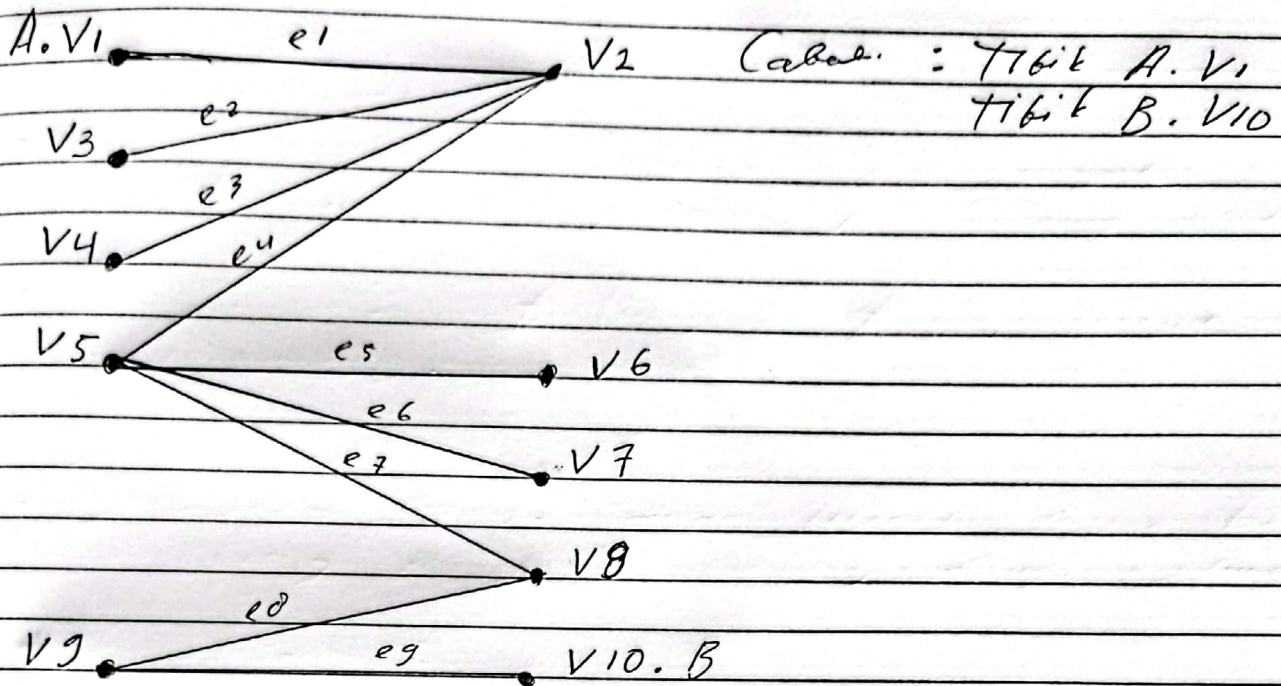 A. V1 e1 V2 : Titik A. V1
Titik B. V10
e2
V3
e3
V4 e4
V5 e5 V6
e6
e7 V7
V8
e8
V9 e9 V10. B